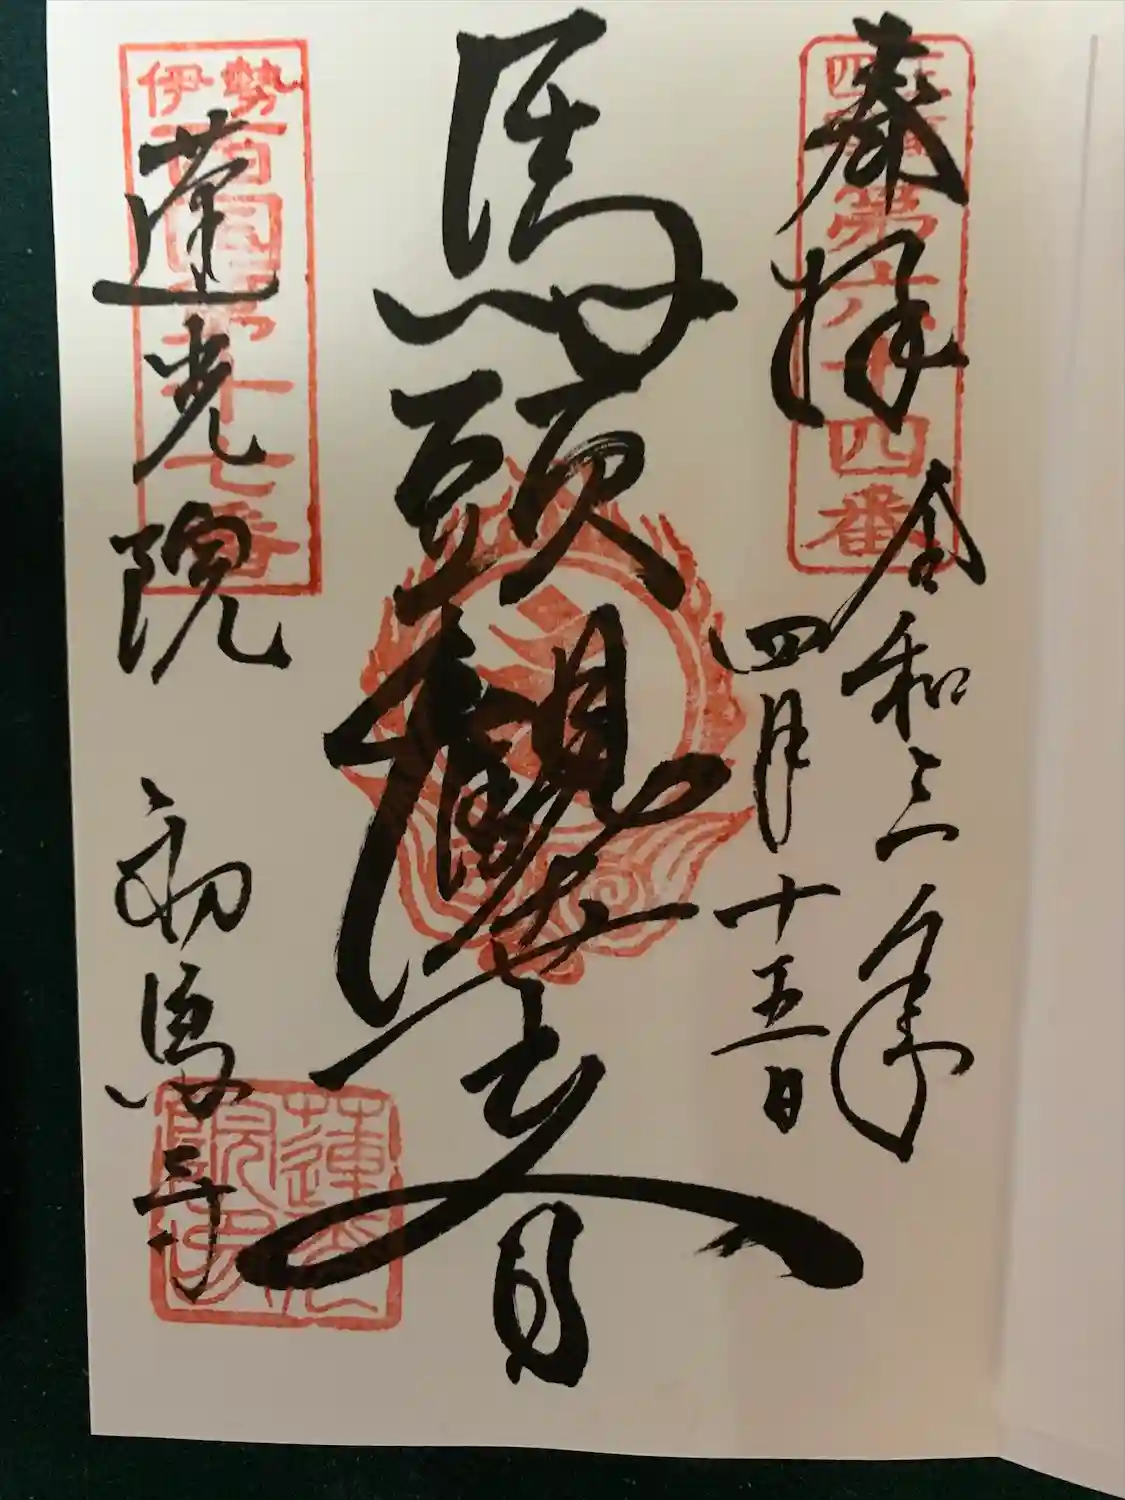 奉拝
令和三年
四月十五日
第五十四番
馬頭観世音
伊勢
西国第十七番
蓮光院
初馬寺
蓮光院